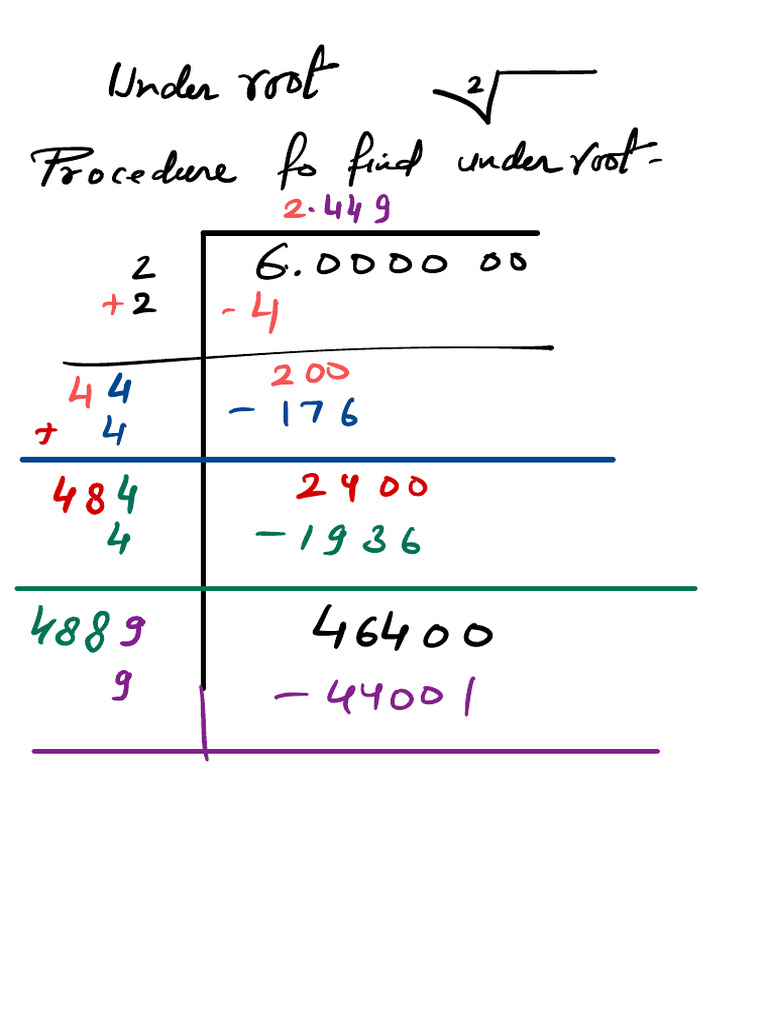 Under root 2√
Procedure to find under root-
2.449
2 6.0000 00
+2 -4
44 200
+ 4 -176
484 2400
4 -1936
4889 46400
9 -44001